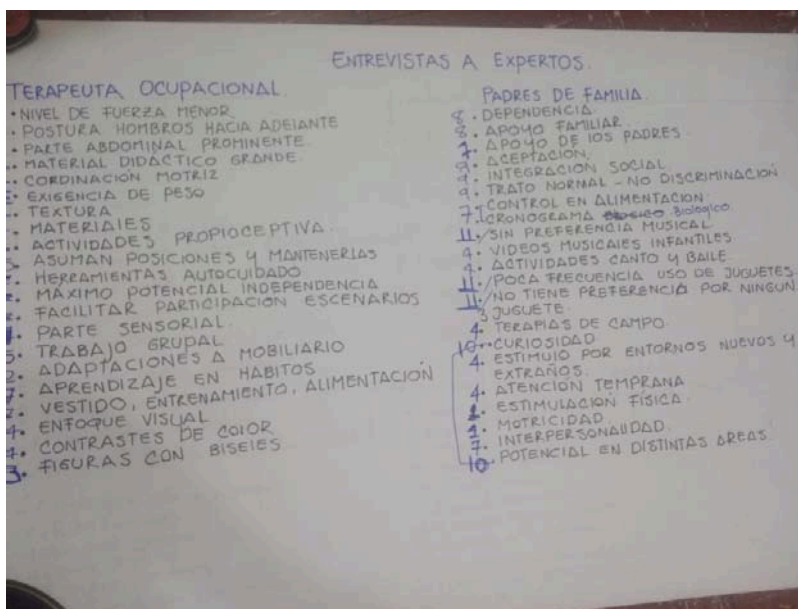 ENTREVISTAS A EXPERTOS.
TERAPEUTA OCUPACIONAL.
• NIVEL DE FUERZA MENOR
• POSTURA HOMBROS HACIA ADELANTE
• PARTE ABDOMINAL PROMINENTE.
• MATERIAL DIDACTICO GRANDE.
• CORDINACIÓN MOTRIZ
• EXIGENCIA DE PESO
• TEXTURA
• MATERIALES
• ACTIVIDADES PROPIOCEPTIVA.
• ASUMAN POSICIONES Y MANTENERLAS
• HERRAMIENTAS AUTOCUIDADO
• MÁXIMO POTENCIAL INDEPENDENCIA
• FACILITAR PARTICIPACIÓN ESCENARIOS
• PARTE SENSORIAL.
• TRABAJO GRUPAL
• ADAPTACIONES A MOBILIARIO
• APRENDIZAJE EN HABITOS
• VESTIDO, ENTRENAMIENTO, ALIMENTACIÓN
• ENFOQUE VISUAL
• CONTRASTES DE COLOR
3. FIGURAS CON BISELES
PADRES DE FAMILIA.
8. DEPENDENCIA.
8. APOYO FAMILIAR.
APOYO DE LOS PADRES.
ACEPTACIÓN.
9. INTEGRACIÓN SOCIAL
9. TRATO NORMAL - NO DISCRIMINACIÓN
7. CONTROL EN ALIMENTACIÓN.
7. CRONOGRAMA Biologico
11. SIN PREFERENCIA MUSICAL.
4. VIDEOS MUSICALES INFANTILES
4. ACTIVIDADES CANTO Y BAILE
11. POCA FRECUENCIA USO DE JUGUETES
11. NO TIENE PREFERENCIA POR NINGUN
JUGUETE.
4. TERAPIAS DE CAMPO.
10. CURIOSIDAD
4. ESTIMULO POR ENTORNOS NUEVOS Y
EXTRAÑOS.
4. ATENCIÓN TEMPRANA
1. ESTIMULACIÓN FÍSICA.
1. MOTRICIDAD.
7. INTERPERSONALIDAD.
10. POTENCIAL EN DISTINTAS AREAS.